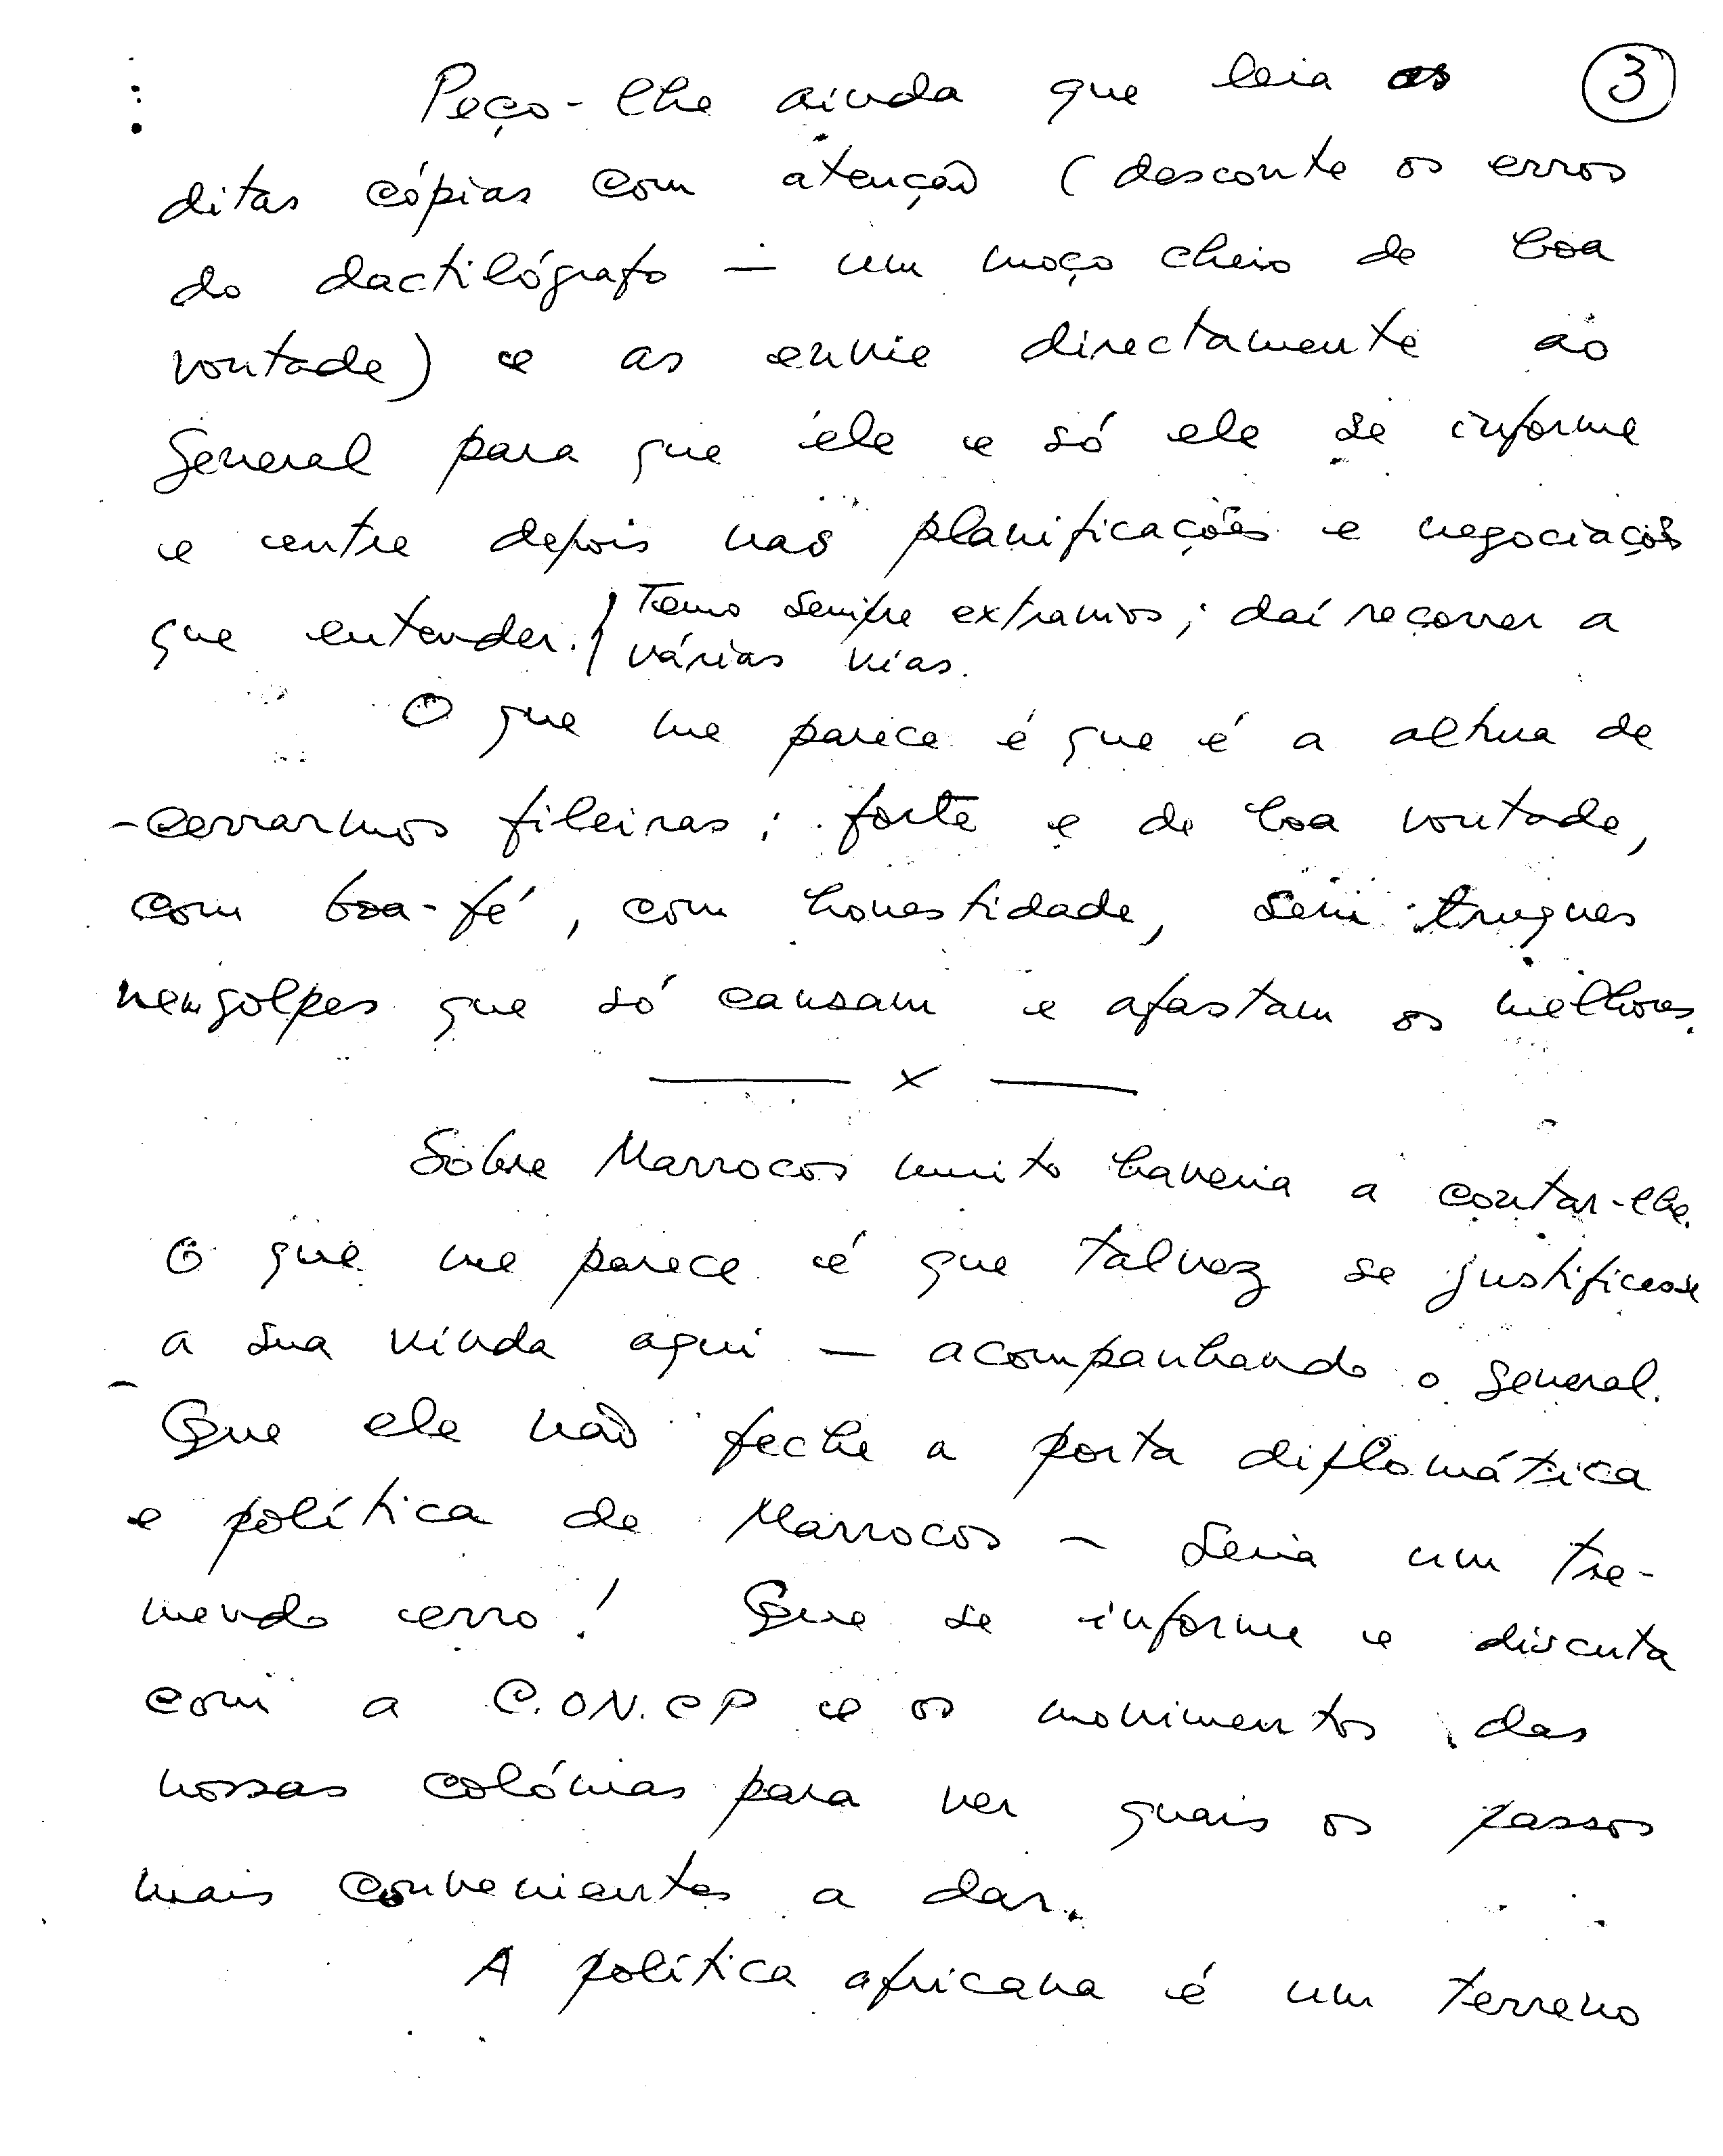 3
Peço-lhe ainda que leia as
ditas cópias com atenção (desconte os erros
do dactilógrafo — um moço cheio de boa
vontade) e as envie directamente ao
General para que ele e só ele se informe
e entre depois nas planificações e negociações
que entender.
Temo sempre extravios; daí recorrer a
várias vias.
O que me parece é que é a altura de
cerrarmos fileiras; forte e de boa vontade,
com boa-fé, com honestidade, sem truques
nem golpes que só cansam e afastam os melhores.
— x —
Sobre Marrocos muito haveria a contar-lhe.
O que me parece é que talvez se justificasse
a sua vinda aqui — acompanhando o general.
Que ele não feche a porta diplomática
e política de Marrocos — seria um tre-
mendo erro! Que se informe e discuta
com a C.ON.CP e os movimentos das
nossas colónias para ver quais os passos
mais convenientes a dar.
A política africana é um terreno